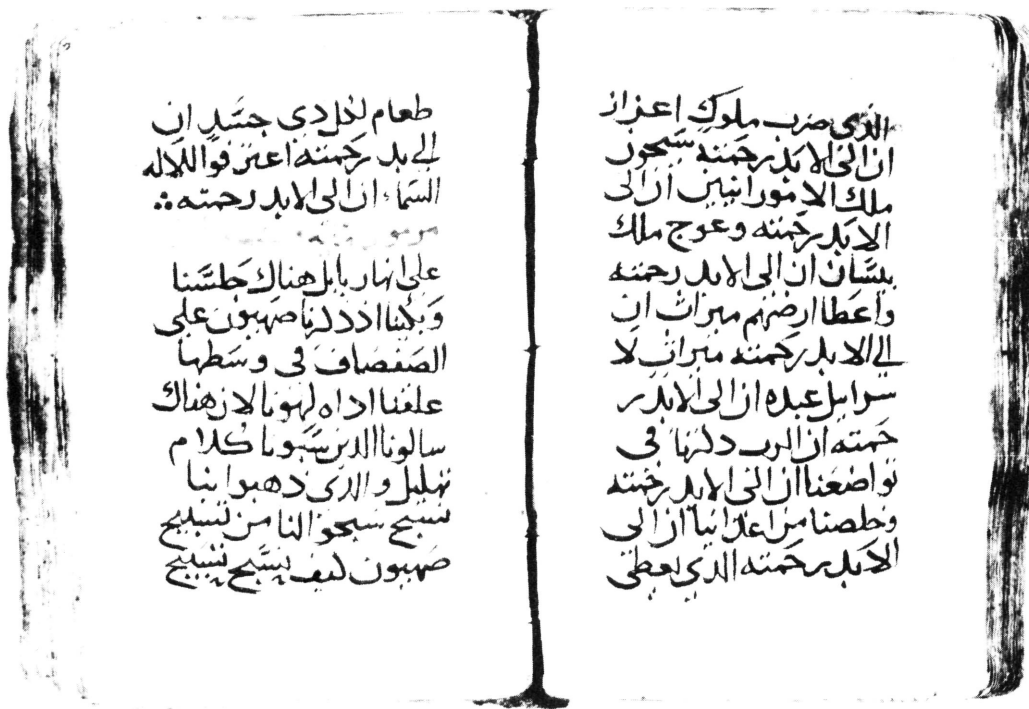 الذى ضرب ملوك اعزاز
ان الى الابد رحمته سيحون
ملك الامورانيين ان الى
الابد رحمته وعوج ملك
بيسان ان الى الابد رحمته
واعطا ارضهم ميراث ان
لى الابد رحمته ميراث لا
سرايل عبده ان الى الابد ر
حمته ان الرب دكرنا فى
تواضعنا ان الى الابد رحمته
وخلصنا من اعداينا ان الى
الابد رحمته الذي يعطى
طعام لكل دى جسد ان
الى بد رحمته اعترفوا للاله
السماء ان الى الابد رحمته ❖
على انهار بابل هناك جلسنا
وبكينا اد دكرنا صهيون على
الصفصاف فى وسطها
علقنا اداه لهونا لان هناك
سالونا الدين سبونا كلام
تهليل والدى دهبوا بنا
تسبيح سبحوا لنا من تسبيح
صهيون كيف نسبح تسبيح